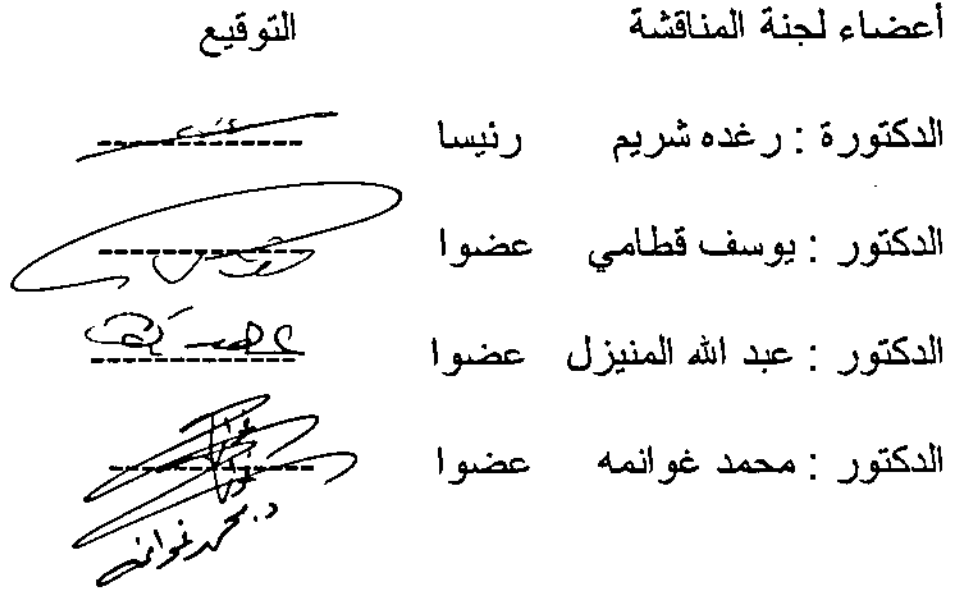 أعضاء لجنة المناقشة التوقيع
الدكتورة : رغده شريم رئيسا
الدكتور : يوسف قطامي عضوا
الدكتور : عبد الله المنيزل عضوا
الدكتور : محمد غوانمه عضوا
د. محمد غوانمه